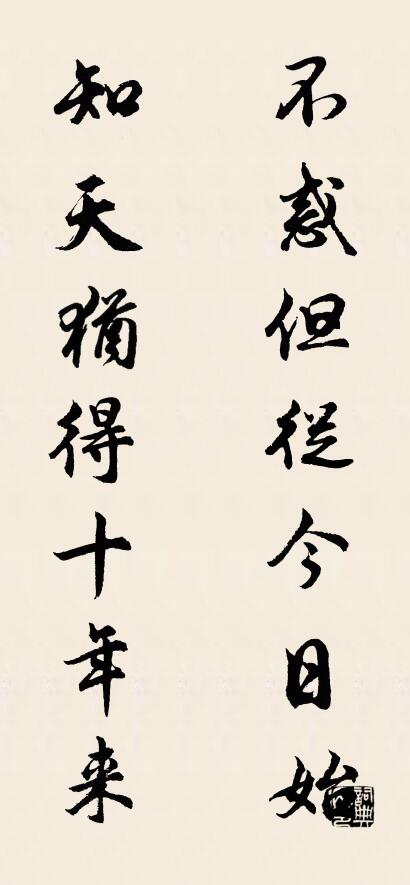 不惑但從今日始
知天猶得十年来
詞典